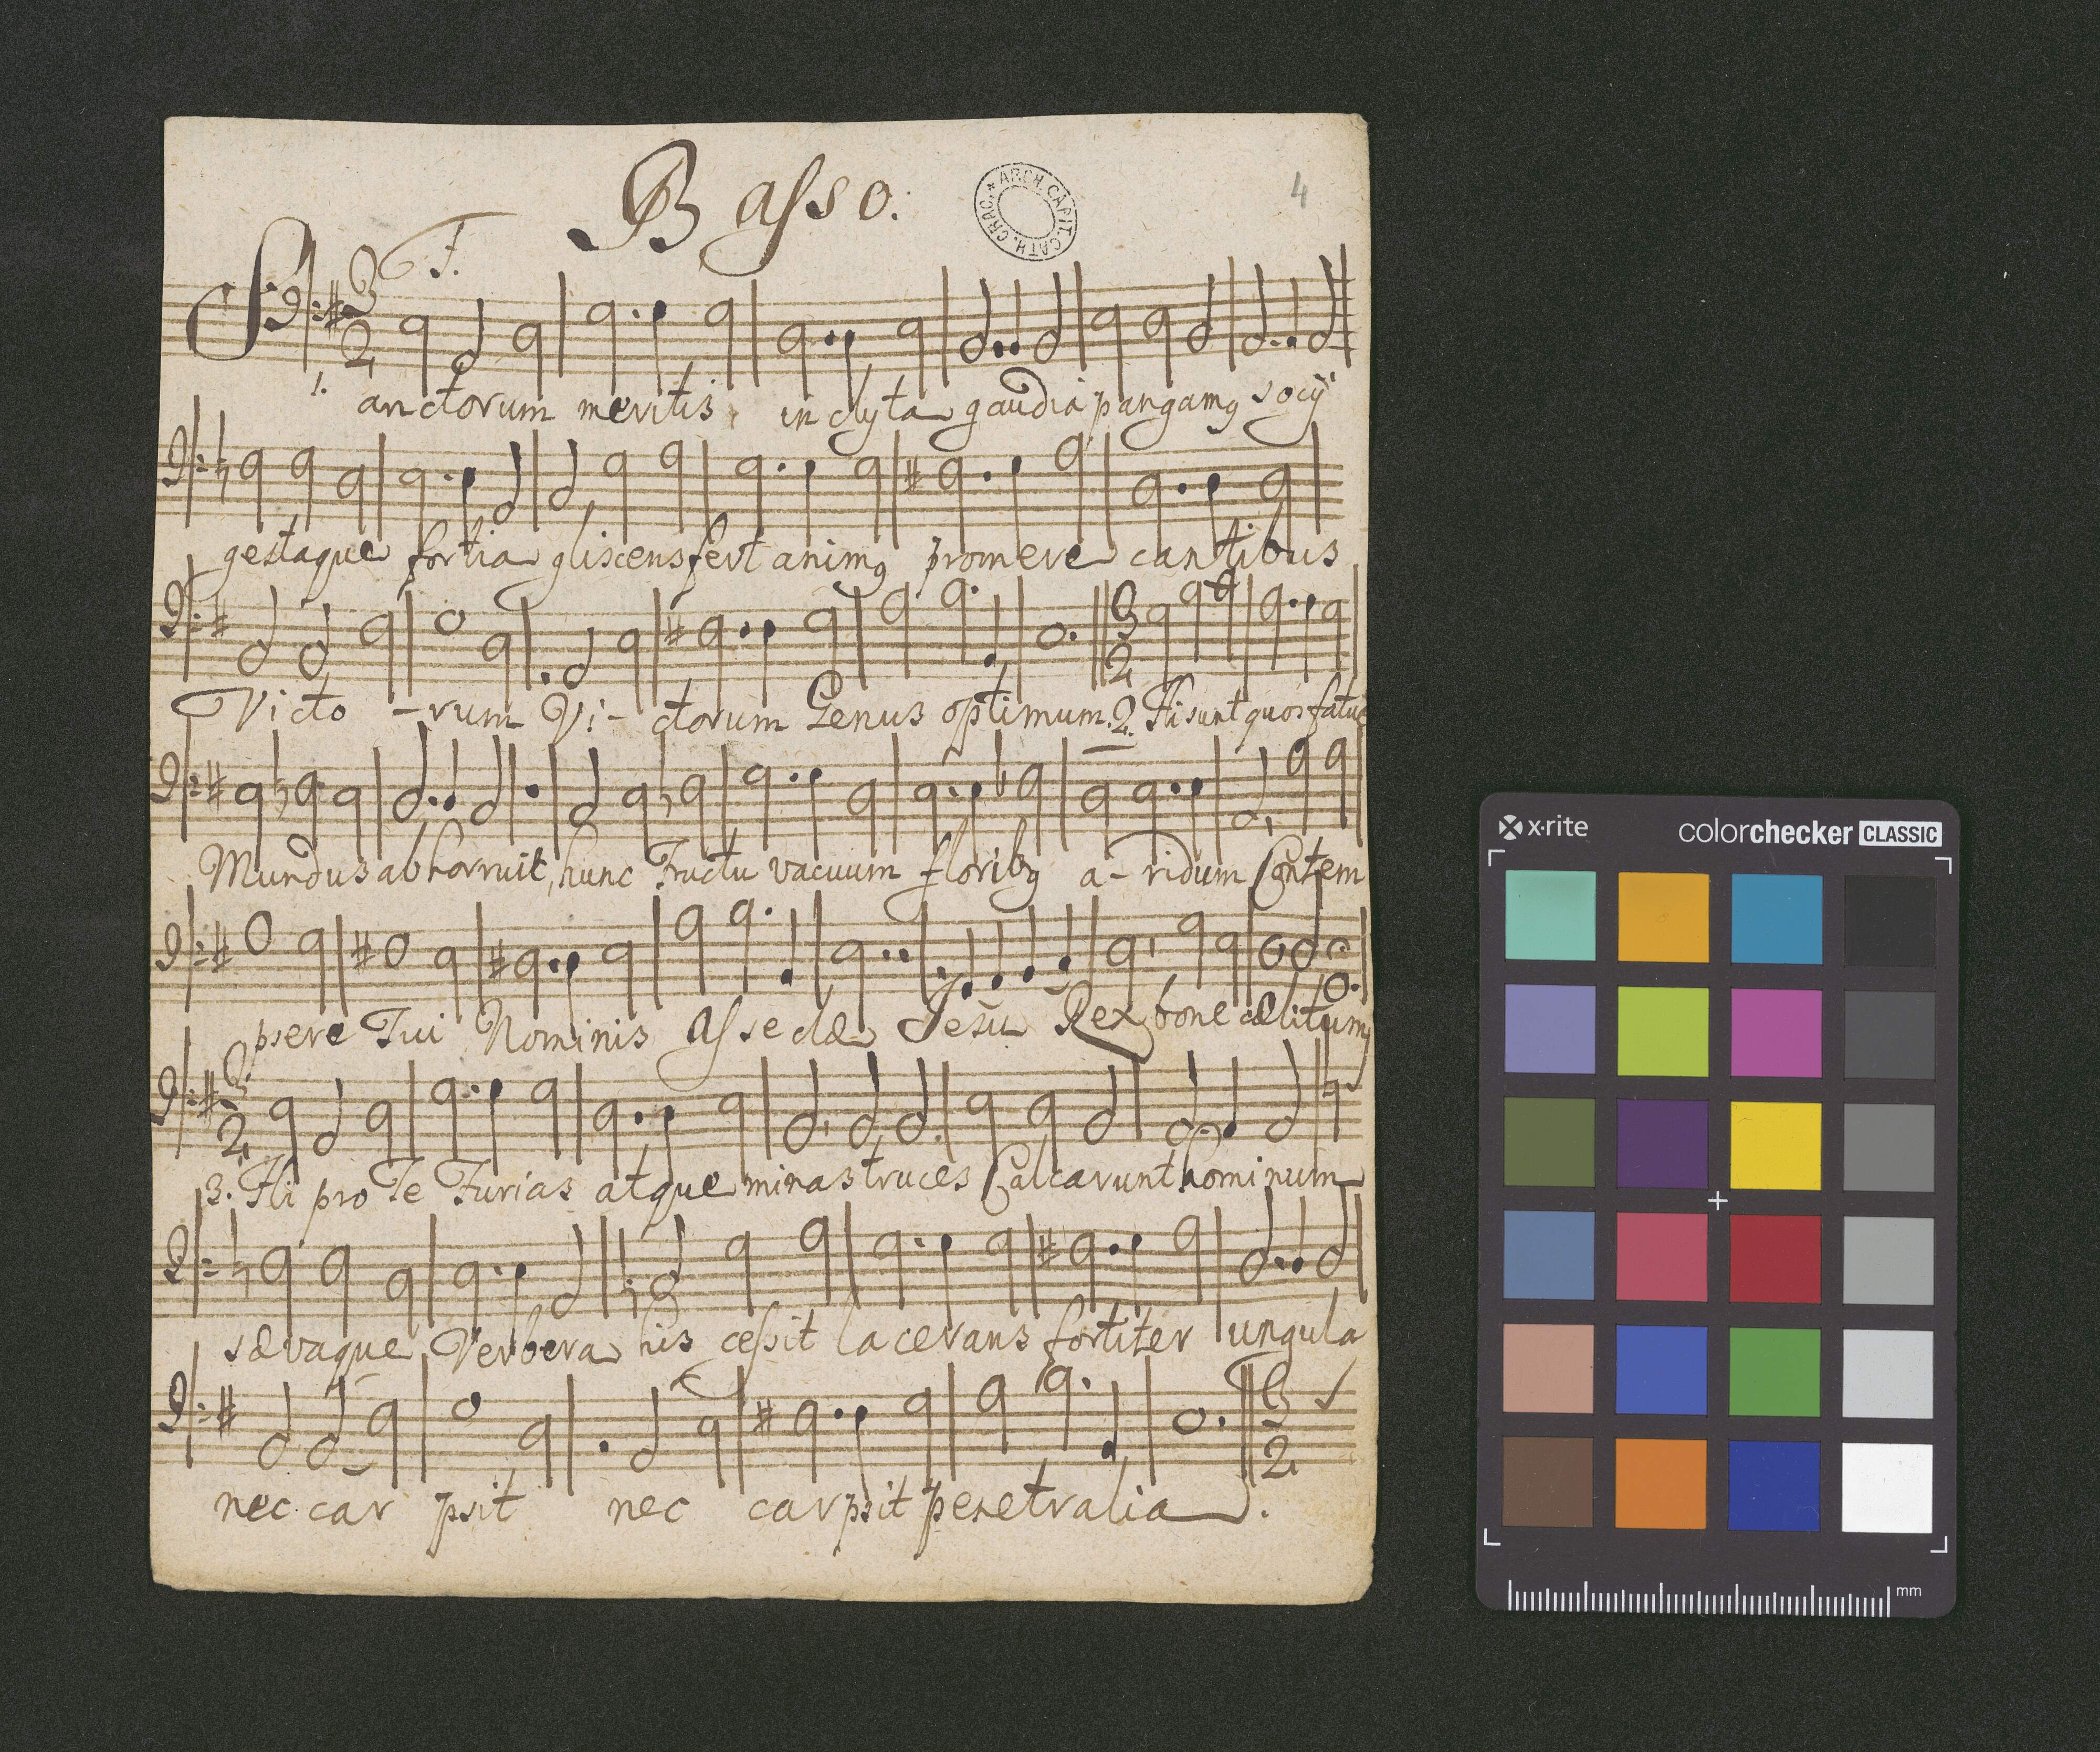 Basso.
ARCH. CAPIT. CATH. CRAC.
4
F.
3
2
1. Sanctorum meritis inclyta gaudia pangamq socij
gestaque fortia gliscens fert animq promere cantibus
3
2
Victo - rum Vi - ctorum Genus optimum. 2. Hi sunt quos fatue
Mundus abhorruit, hunc Fructu vacuum floribq a - ridum Contem
psere Tui Nominis Asseclæ Jesu Rex bone cælitum
3
2
3. Hi pro Te Furias atque minas truces Calcarunt hominum
sævaque Verbera his cessit lacerans fortiter ungula
3
2
nec car psit nec carpsit penetralia.
x·rite
colorchecker CLASSIC
mm